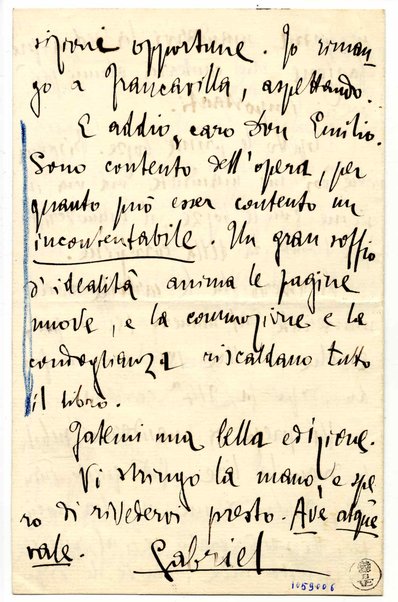 sizioni opportune. Io riman-
go a Francavilla, aspettando.
E addio, caro Don Emilio.
Sono contento dell'opera, per
quanto può esser contento un
incontentabile. Un gran soffio
d'idealità anima le pagine
nuove, e la commozione e la
riscaldano tutto
il libro.
Fatemi una bella edizione.
Vi stringo la mano, e spe-
ro di rivedervi presto. Ave atque
vale. Gabriel
1059006